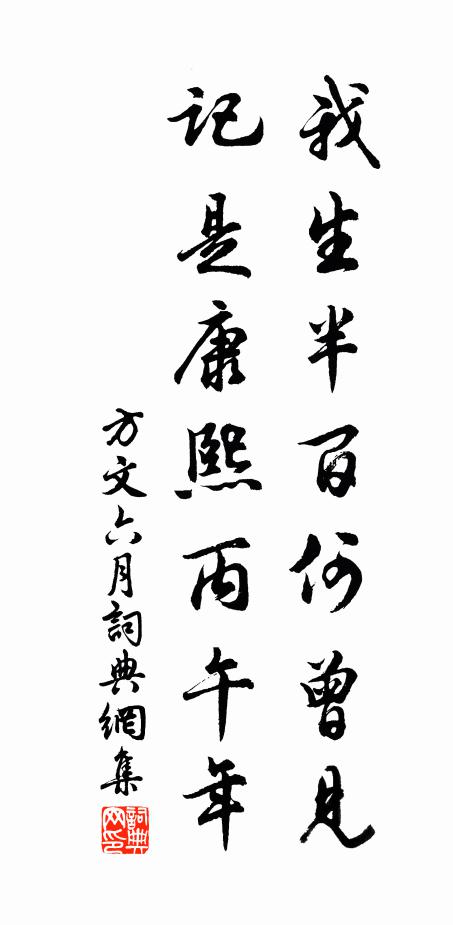 我生半百何曾見
記是康熙丙午年
方文六月詞典網集
詞典
网印